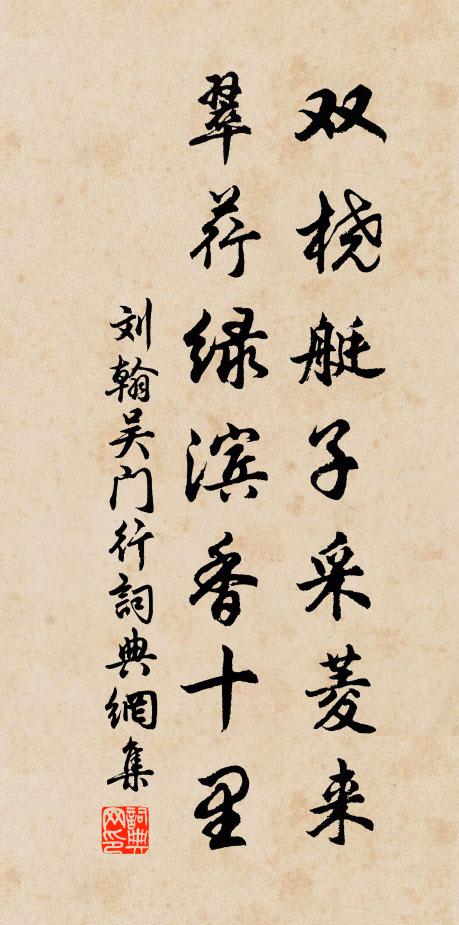 双桡艇子采菱来
翠荇绿滨香十里
刘翰吴门行詞典網集
詞典
网印